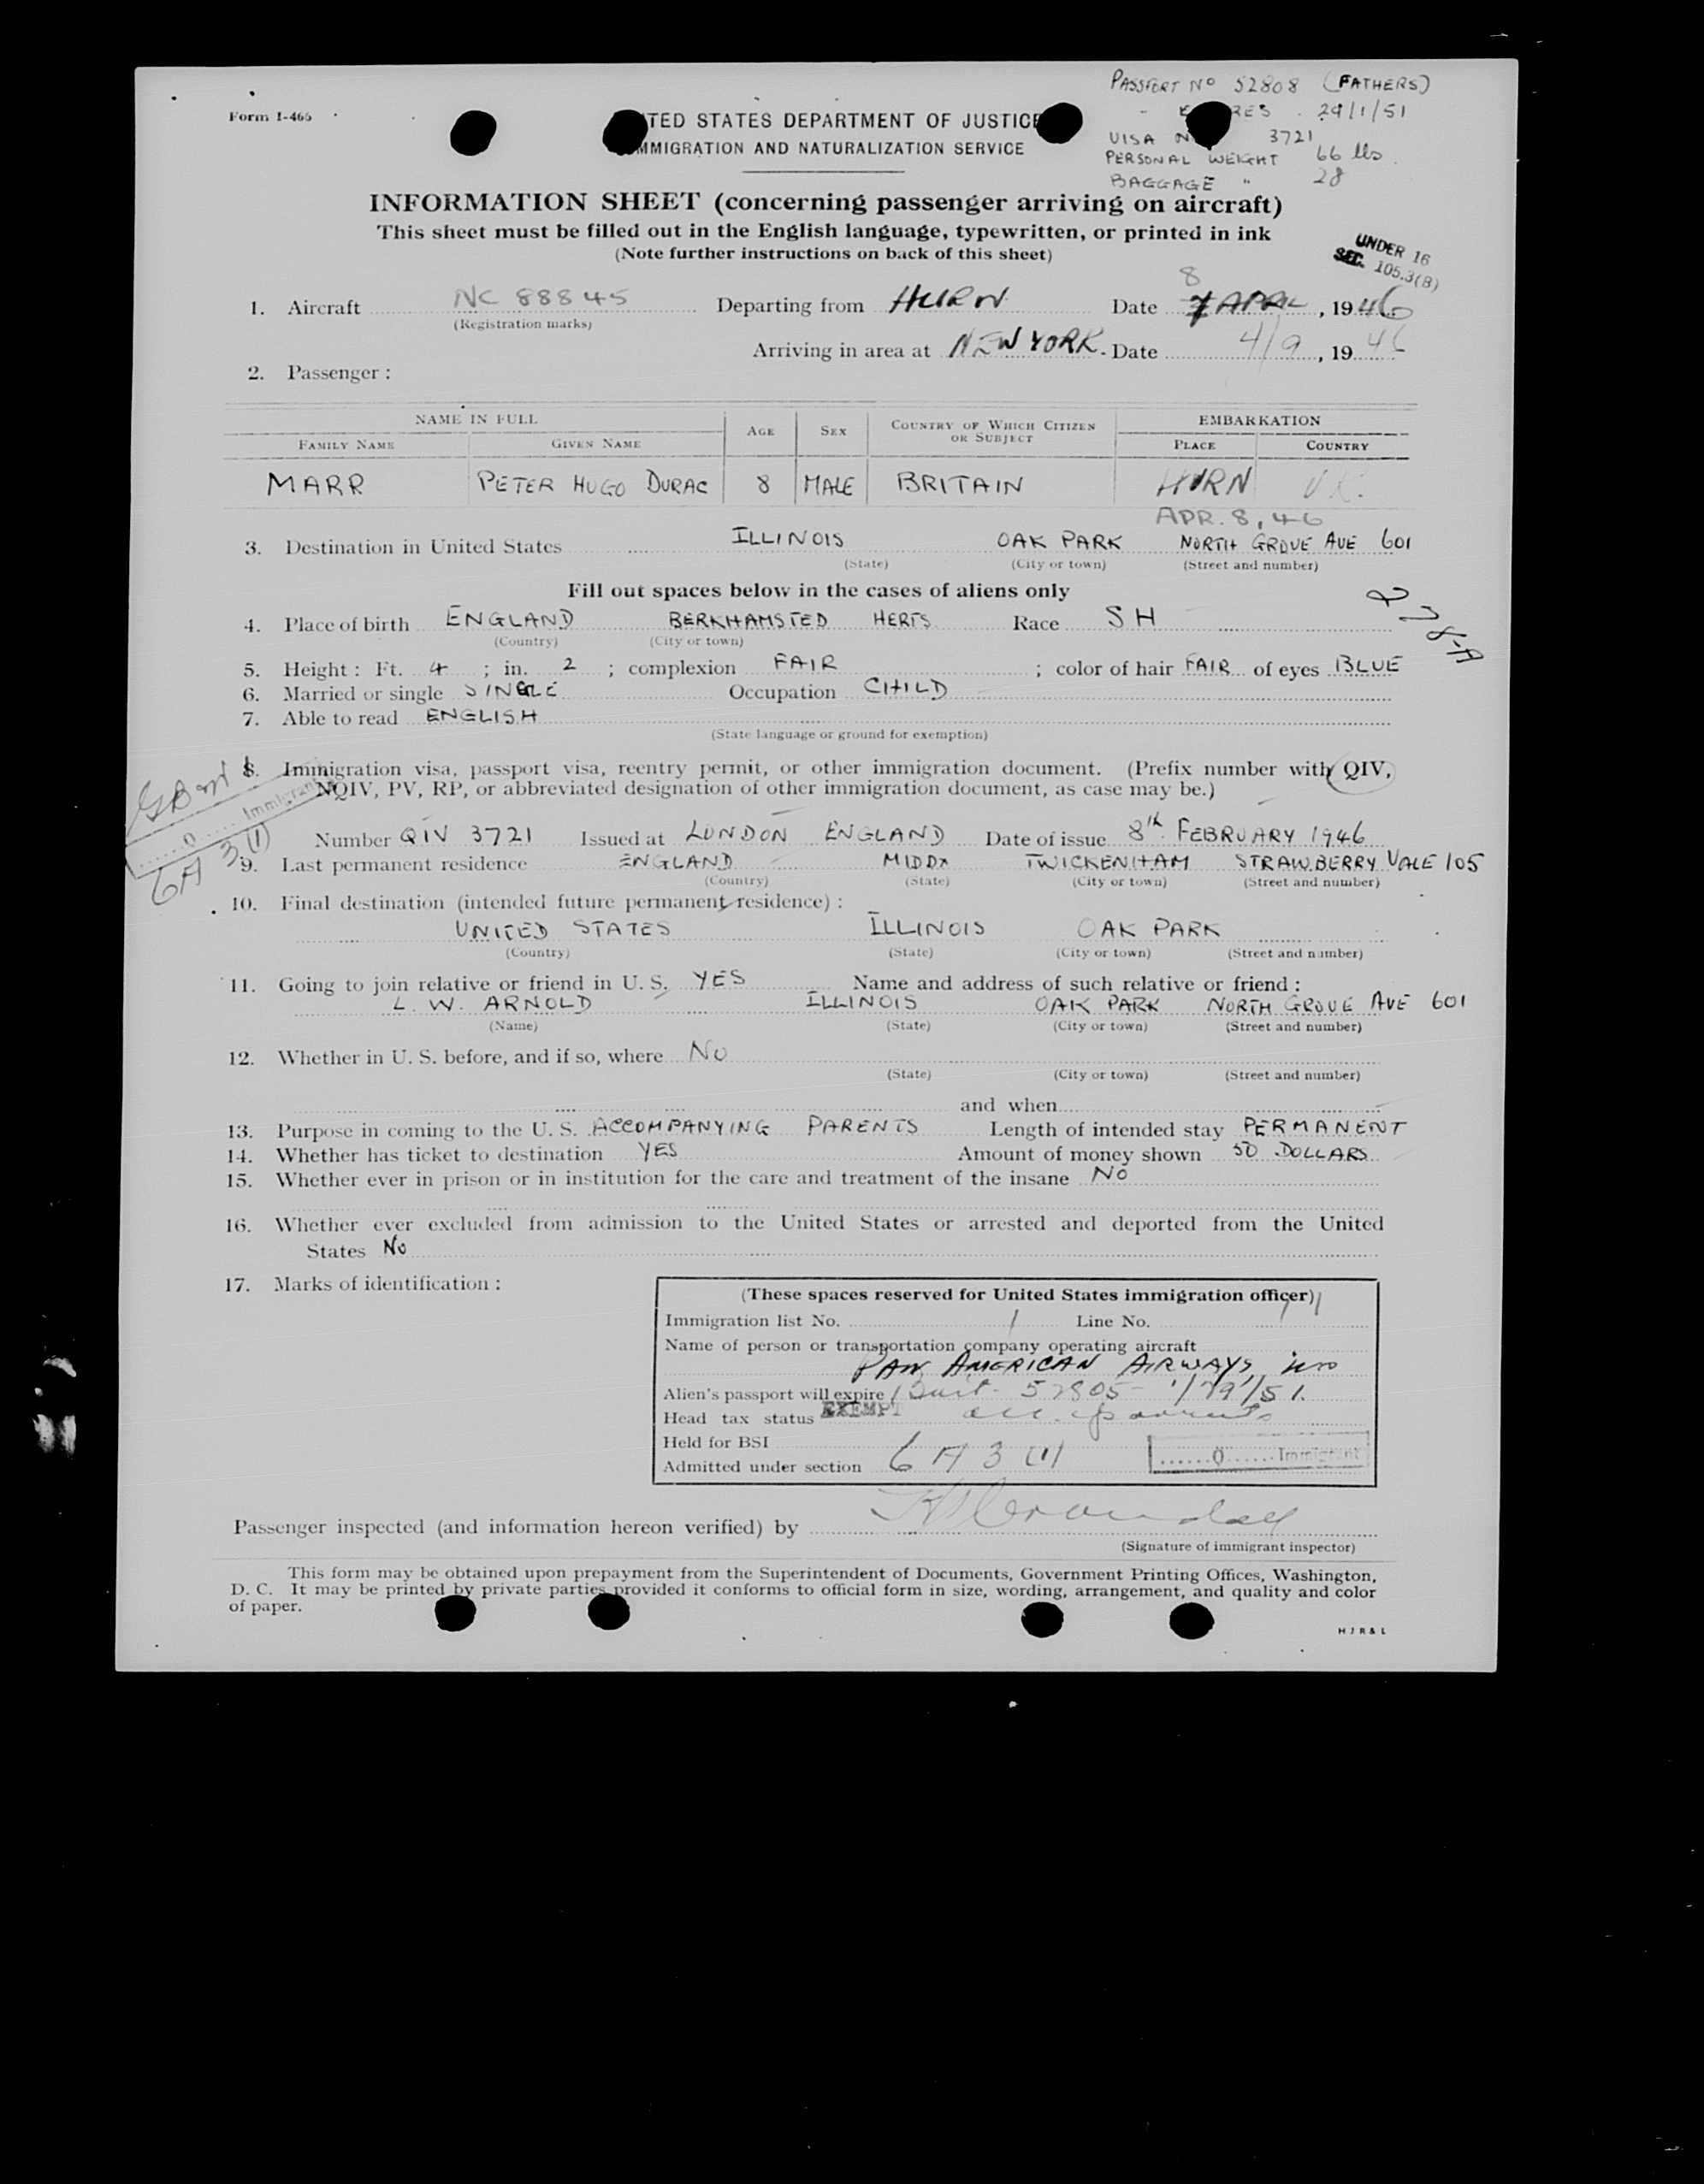 PASSPORT No 52808 (FATHERS)
Form I-466
TED STATES DEPARTMENT OF JUSTICE
RES . 29/1/51
VISA N 3721
MMIGRATION AND NATURALIZATION SERVICE
PERSONAL WEIGHT 66 lbs.
BAGGAGE " 28
INFORMATION SHEET (concerning passenger arriving on aircraft)
This sheet must be filled out in the English language, typewritten, or printed in ink
(Note further instructions on back of this sheet)
UNDER 16
SEC. 105.3(B)
8
1. Aircraft NC 88845 Departing from HURN Date 7 APRIL, 1946
(Registration marks)
Arriving in area at NEW YORK. Date 4/9, 1946
2. Passenger :
NAME IN FULL AGE SEX COUNTRY OF WHICH CITIZEN OR SUBJECT EMBARKATION
FAMILY NAME GIVEN NAME PLACE COUNTRY
MARR PETER HUGO DURAC 8 MALE BRITAIN HURN UK.
APR. 8, 46
3. Destination in United States ILLINOIS OAK PARK NORTH GROVE AVE 601
(State) (City or town) (Street and number)
Fill out spaces below in the cases of aliens only
278-A
4. Place of birth ENGLAND BERKHAMSTED HERTS Race SH
(Country) (City or town)
5. Height : Ft. 4 ; in. 2 ; complexion FAIR ; color of hair FAIR of eyes BLUE
6. Married or single SINGLE Occupation CHILD
7. Able to read ENGLISH
(State language or ground for exemption)
8. Immigration visa, passport visa, reentry permit, or other immigration document. (Prefix number with QIV,
NQIV, PV, RP, or abbreviated designation of other immigration document, as case may be.)
......Q...... Immigrant
6A 3 (1)
Number QIV 3721 Issued at LONDON ENGLAND Date of issue 8th FEBRUARY 1946
9. Last permanent residence ENGLAND MIDDX TWICKENHAM STRAWBERRY VALE 105
(Country) (State) (City or town) (Street and number)
10. Final destination (intended future permanent residence) :
UNITED STATES ILLINOIS OAK PARK
(Country) (State) (City or town) (Street and number)
11. Going to join relative or friend in U. S. YES Name and address of such relative or friend :
L. W. ARNOLD ILLINOIS OAK PARK NORTH GROVE AVE 601
(Name) (State) (City or town) (Street and number)
12. Whether in U. S. before, and if so, where NO
(State) (City or town) (Street and number)
and when
13. Purpose in coming to the U. S. ACCOMPANYING PARENTS Length of intended stay PERMANENT
14. Whether has ticket to destination YES Amount of money shown 50 DOLLARS
15. Whether ever in prison or in institution for the care and treatment of the insane NO
16. Whether ever excluded from admission to the United States or arrested and deported from the United
States No
17. Marks of identification :
(These spaces reserved for United States immigration officer)
Immigration list No. 1 Line No. 11
Name of person or transportation company operating aircraft
PAN AMERICAN AIRWAYS, INC
Alien's passport will expire Brit. 52805 - 1/29/51.
Head tax status EXEMPT acc. parents
Held for BSI
Admitted under section 6A3(1) ......Q...... Immigrant
Passenger inspected (and information hereon verified) by
(Signature of immigrant inspector)
This form may be obtained upon prepayment from the Superintendent of Documents, Government Printing Offices, Washington,
D. C. It may be printed by private parties provided it conforms to official form in size, wording, arrangement, and quality and color
of paper.
H J R & L